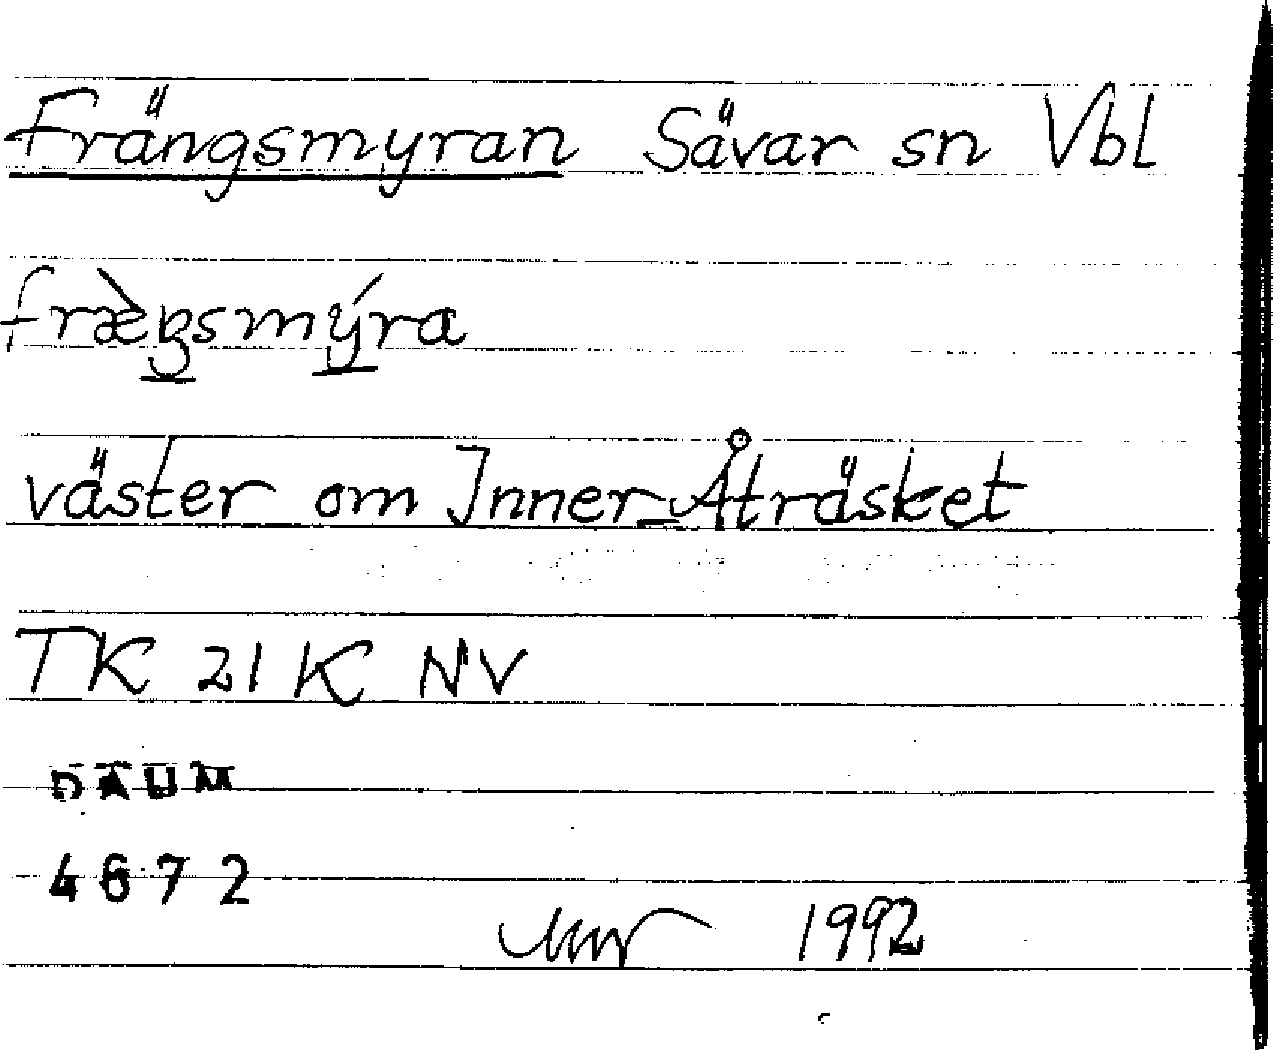 Frängsmyran Sävar sn Vbl
fræ̀ŋsmýra
väster om Inner-Åträsket
TK 21 K NV
DAUM
4672
1992